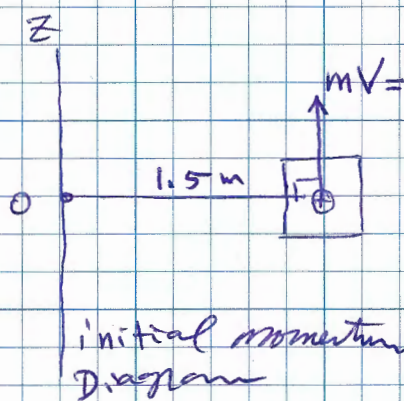 Z
mV=
1.5 m
O
initial momentum
Diagram